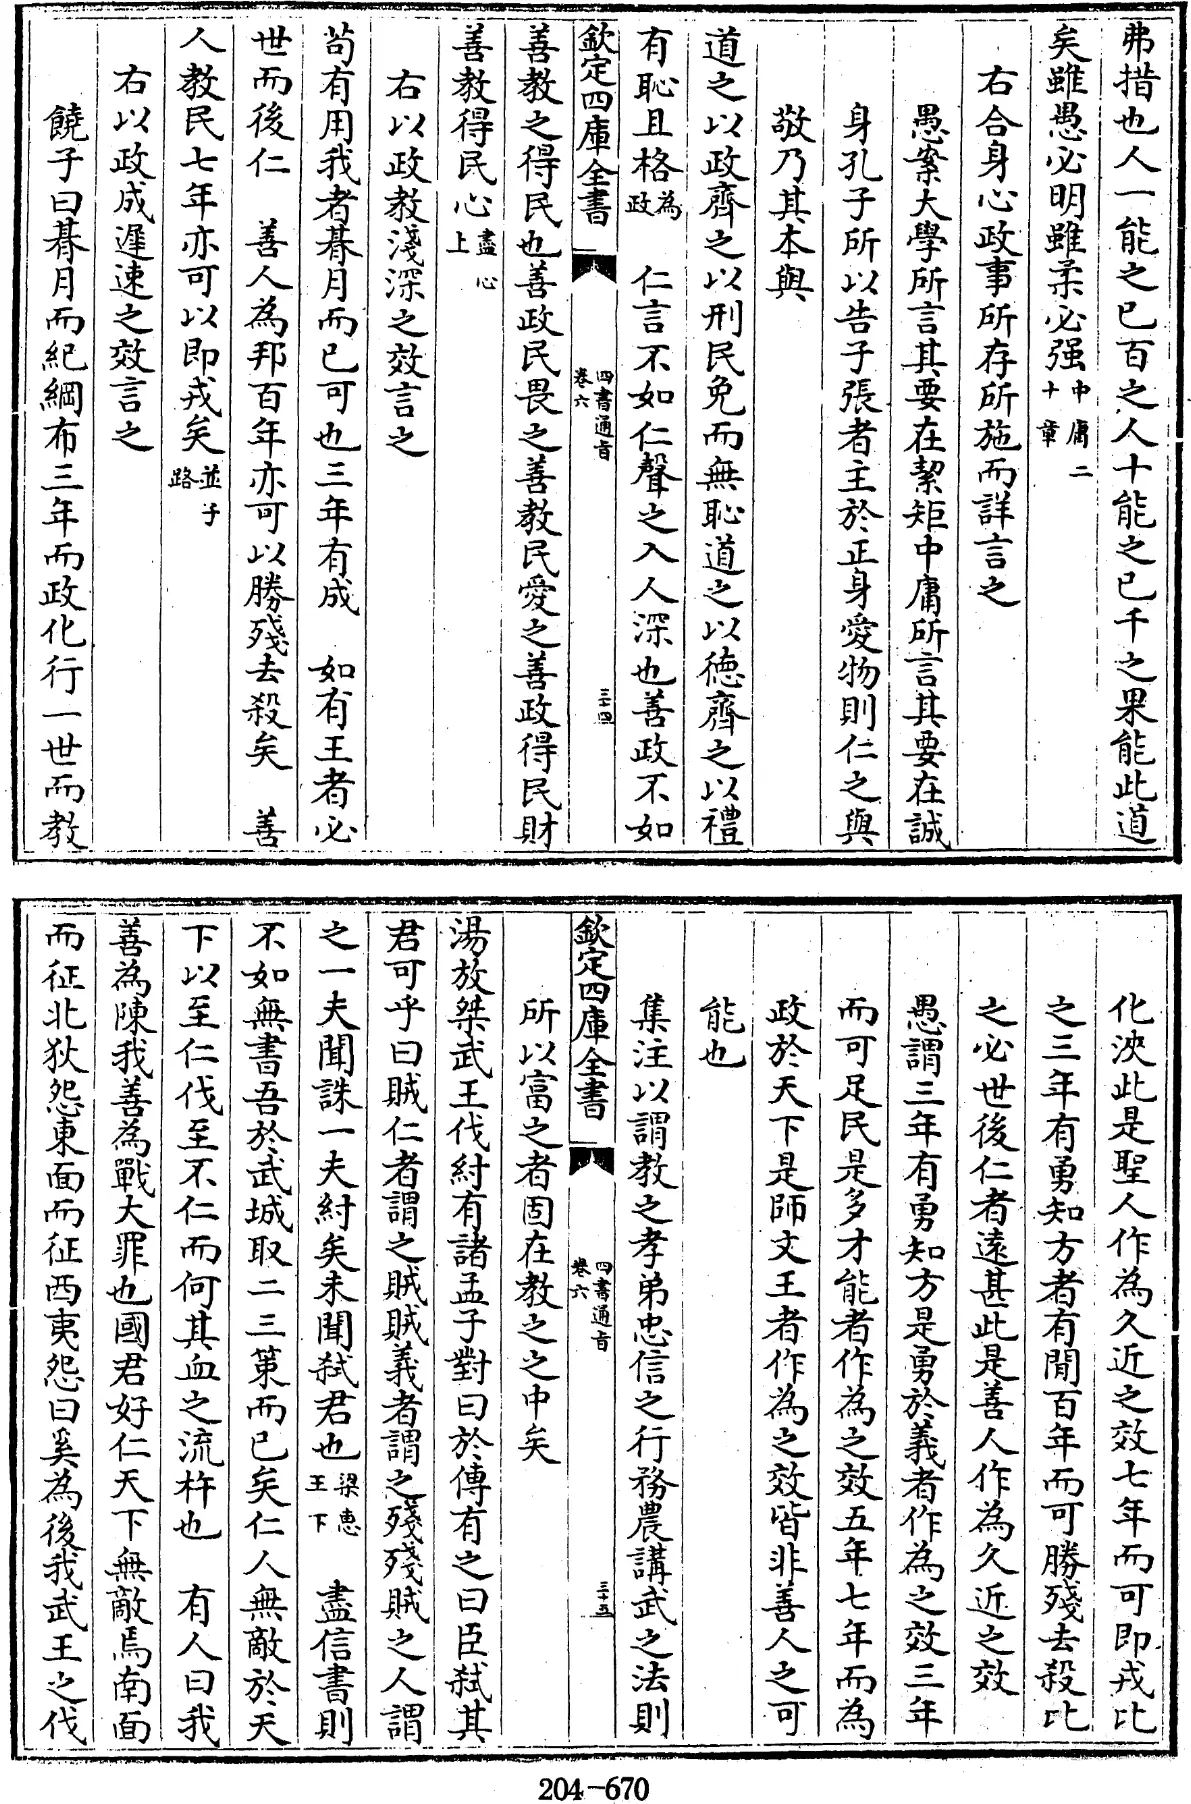 弗措也人一能之已百之人十能之已千之果能此道
矣雖愚必明雖柔必强中庸二十章
右合身心政事所存所施而詳言之
愚案大學所言其要在絜矩中庸所言其要在誠
身孔子所以告子張者主於正身愛物則仁之與
敬乃其本與
道之以政齊之以刑民免而無恥道之以徳齊之以禮
有恥且格為政　仁言不如仁聲之入人深也善政不如
欽定四庫全書　四書通旨卷六　三十四
善教之得民也善政民畏之善教民愛之善政得民財
善教得民心盡心上
右以政教淺深之效言之
茍有用我者朞月而已可也三年有成　如有王者必
世而後仁　善人為邦百年亦可以勝殘去殺矣　善
人教民七年亦可以即戎矣並子路
右以政成遲速之效言之
饒子曰朞月而紀綱布三年而政化行一世而教
化浹此是聖人作為久近之效七年而可即戎比
之三年有勇知方者有間百年而可勝殘去殺比
之必世後仁者遠甚此是善人作為久近之效
愚謂三年有勇知方是勇於義者作為之效三年
而可足民是多才能者作為之效五年七年而為
政於天下是師文王者作為之效皆非善人之可
能也
集注以謂教之孝弟忠信之行務農講武之法則
欽定四庫全書　四書通旨卷六　三十五
所以富之者固在教之之中矣
湯放桀武王伐紂有諸孟子對曰於傳有之曰臣弑其
君可乎曰賊仁者謂之賊賊義者謂之殘殘賊之人謂
之一夫聞誅一夫紂矣未聞弑君也梁惠王下　盡信書則
不如無書吾於武城取二三策而已矣仁人無敵於天
下以至仁伐至不仁而何其血之流杵也　有人曰我
善為陳我善為戰大罪也國君好仁天下無敵焉南面
而征北狄怨東面而征西夷怨曰奚為後我武王之伐
204-670